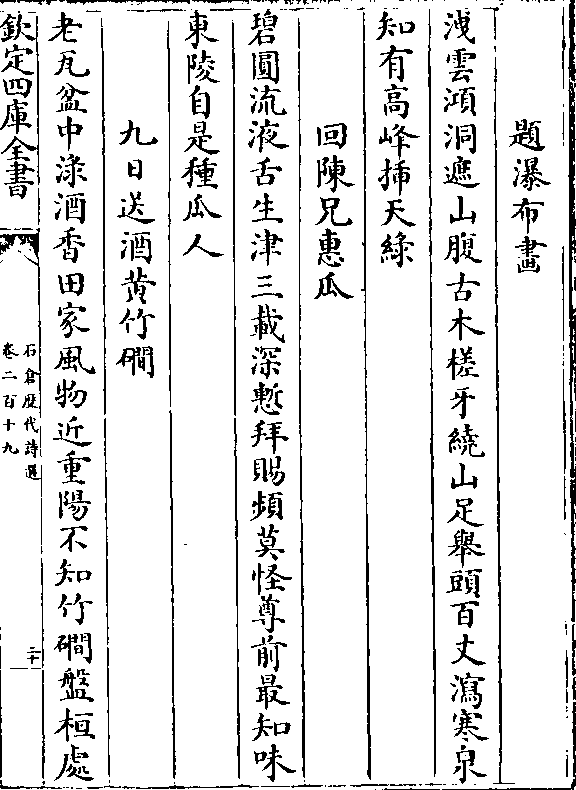 題瀑布畫
洩雲澒洞遮山腹古木槎牙繞山足舉頭百丈瀉寒泉
知有高峰揷天綠
回陳兄惠瓜
碧圓流液舌生津三載深慙拜賜頻莫怪尊前最知味
東陵自是種瓜人
九日送酒黄竹磵
老瓦盆中淥酒香田家風物近重陽不知竹磵盤桓處
欽定四庫全書
石倉歷代詩選
卷二百十九
二十